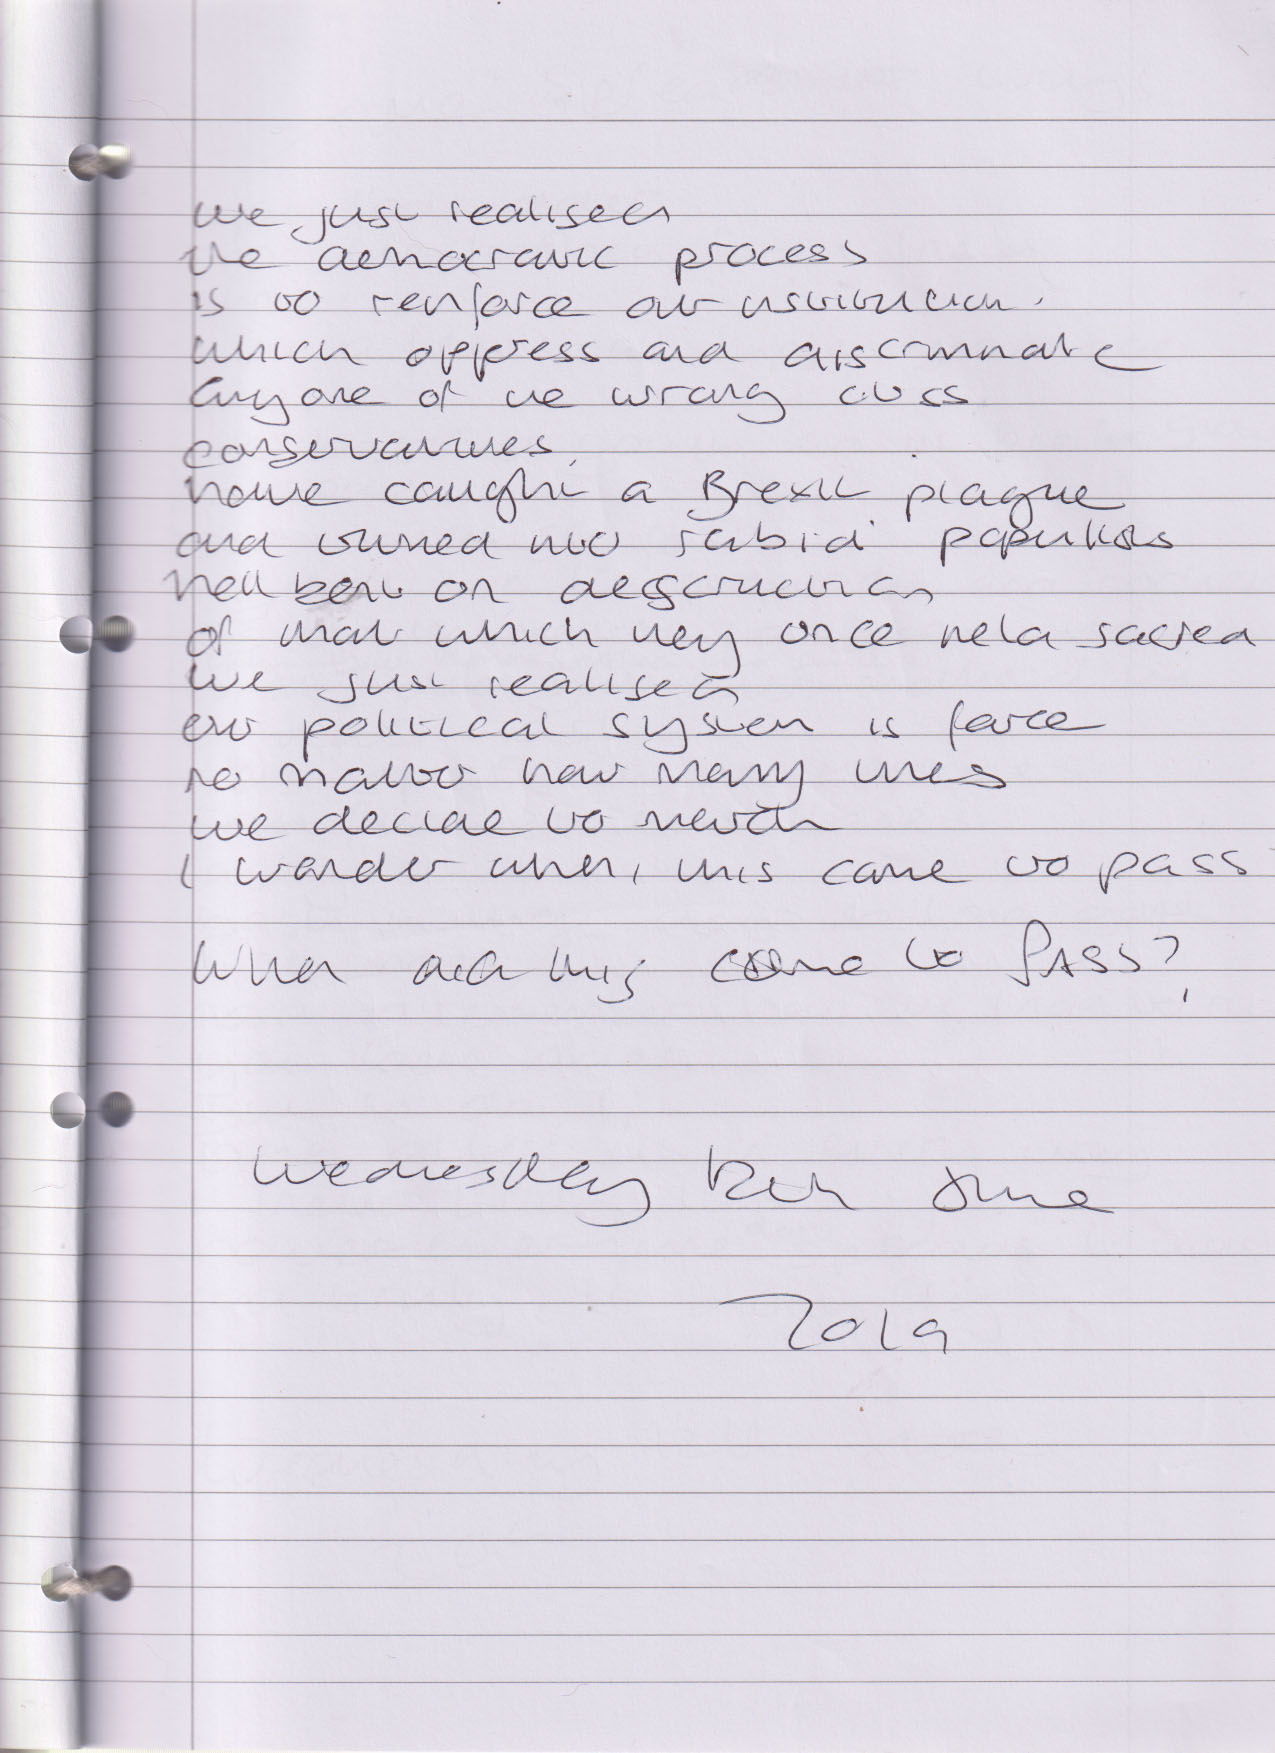 We just realised
the democratic process
is to renforce our institution.
which oppress and discriminate
Anyone of the wrong class
conservatives,
have caught a Brexit plague
and turned into rabid populists
hell bent on desctruction
of that which they once held sacred
We just realised
our political system is farce
no matter how many times
we decide to march
I wonder when, this came to pass
When did this come to PASS?
Wednesday 12th June
2019